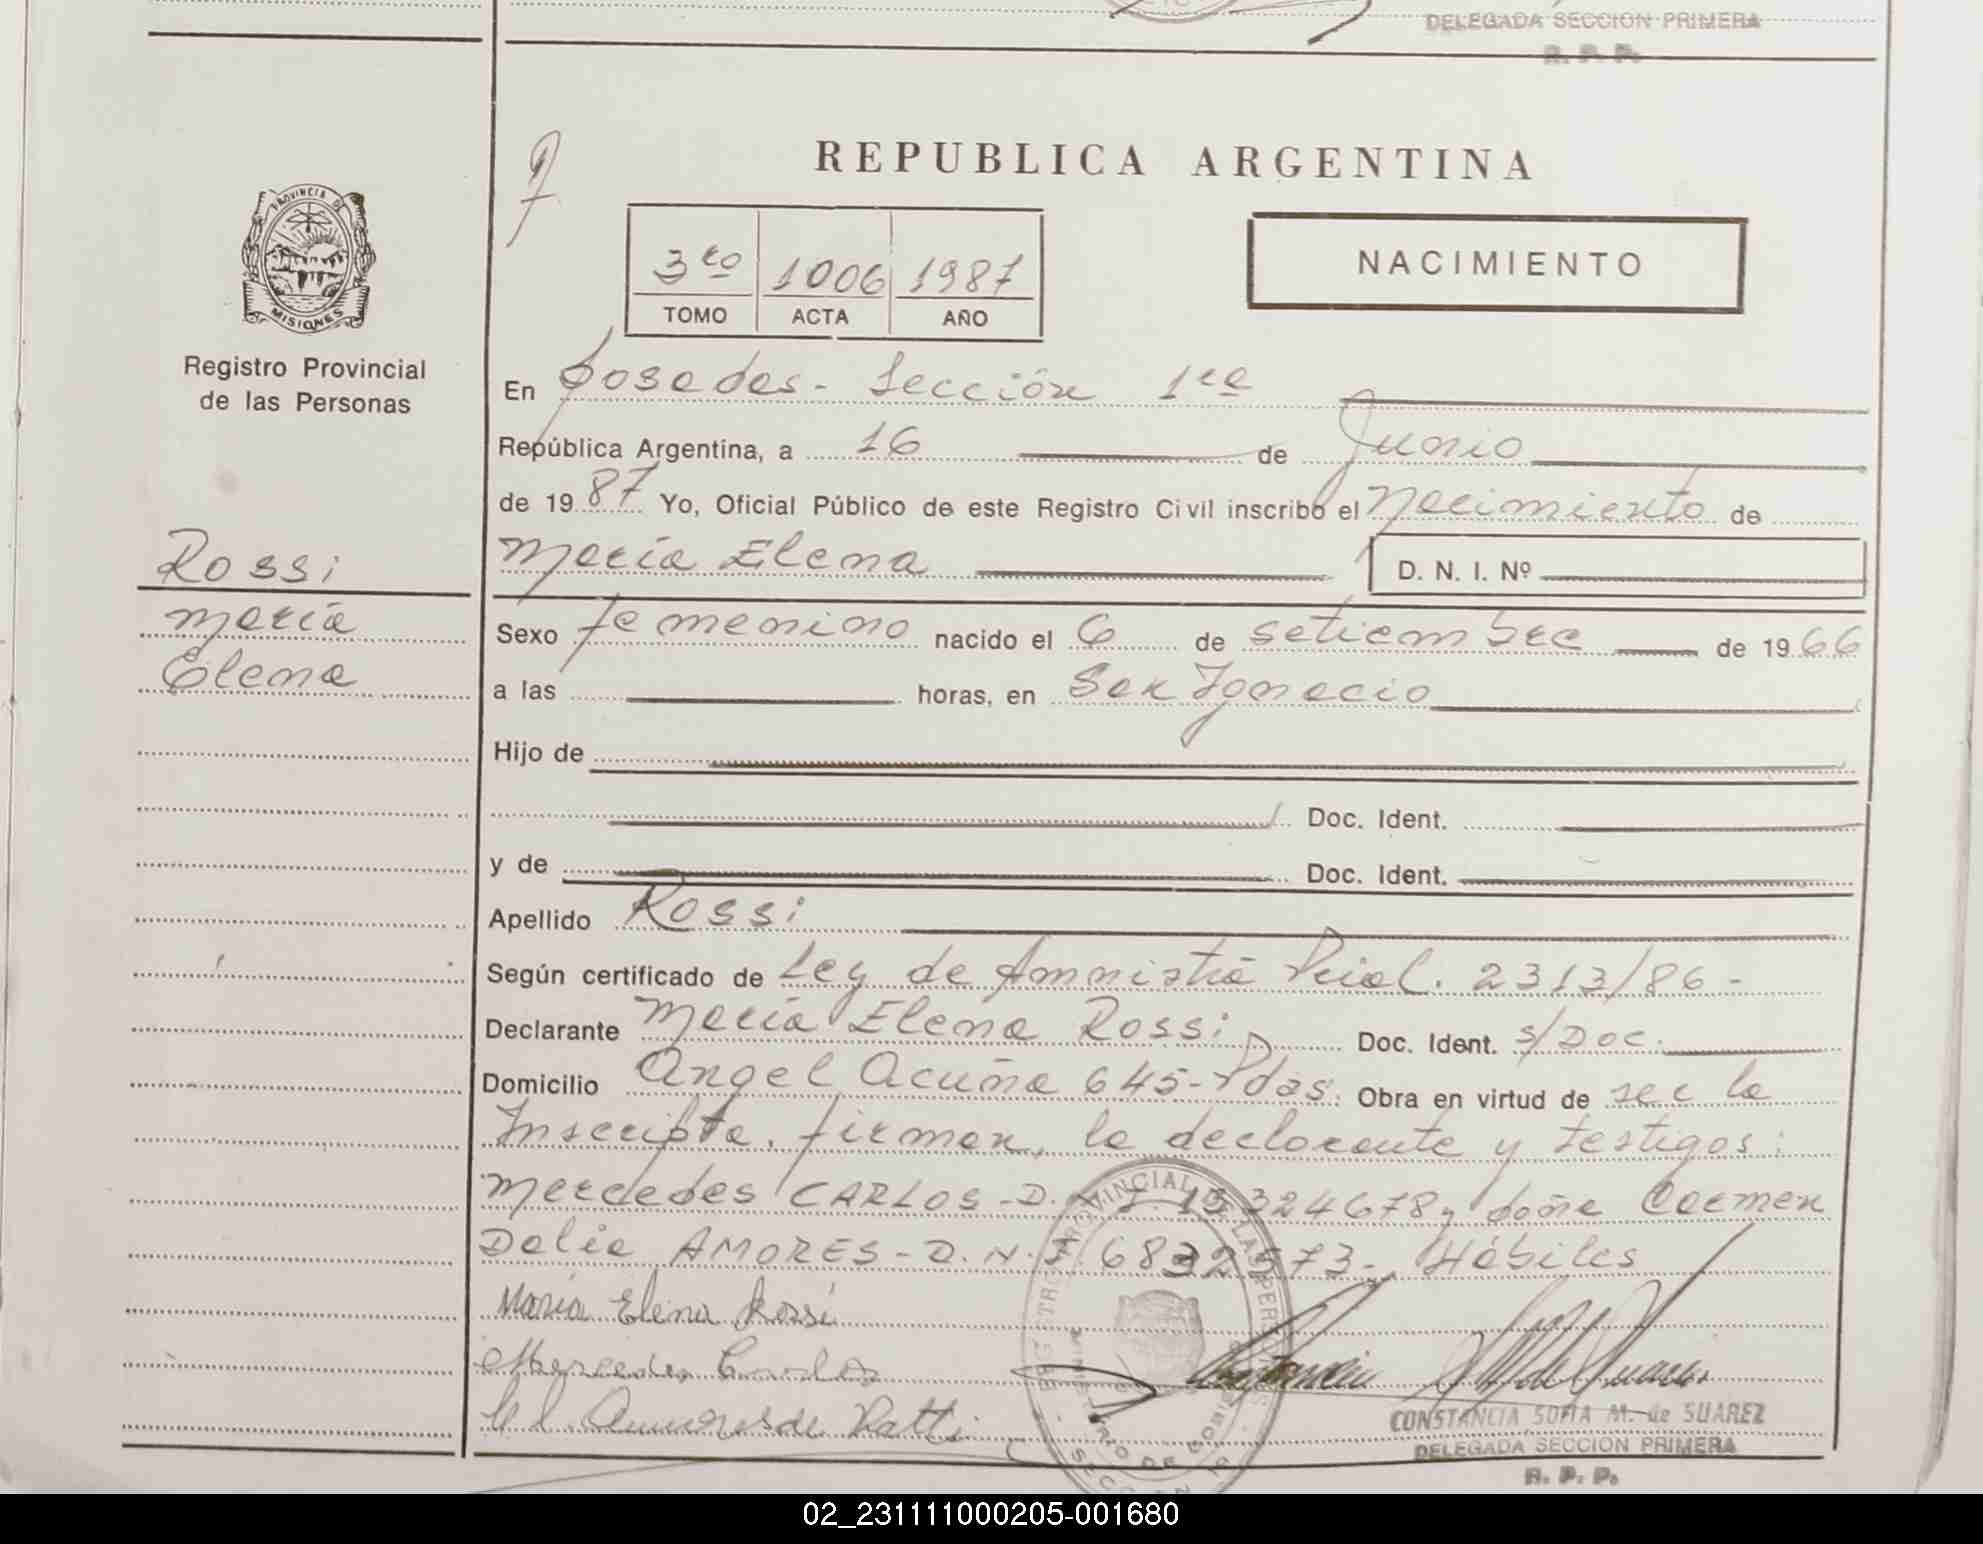 DELEGADA SECCION PRIMERA
R. P. P.
REPUBLICA ARGENTINA
PROVINCIA DE
MISIONES
3ro 1006 1987
TOMO ACTA AÑO
NACIMIENTO
Registro Provincial
de las Personas
En Posadas - Sección 1ra
República Argentina, a 16 de Junio
de 1987 Yo, Oficial Público de este Registro Civil inscribo el Nacimiento de
María Elena D. N. I. Nº
Rossi
María
Elena
Sexo femenino nacido el 6 de setiembre de 1966
a las horas, en San Ignacio
Hijo de
Doc. Ident.
y de Doc. Ident.
Apellido Rossi
Según certificado de Ley de Amnistía Pcial. 2313/86 -
Declarante María Elena Rossi Doc. Ident. s/Doc.
Domicilio Angel Acuña 645 - Pdas. Obra en virtud de ser la
Inscripta. firman, la declarante y testigos:
Mercedes CARLOS - D.N.I. 15324678 y doña Carmen
Delia AMORES - D.N.I. 6832573 - Hábiles
María Elena Rossi
Mercedes Carlos
C. D. Amores de Ratti
REGISTRO PROVINCIAL DE LAS PERSONAS
MINISTERIO DE GOBIERNO
SECCION
CONSTANCIA SOFIA M. de SUAREZ
DELEGADA SECCION PRIMERA
R. P. P.
02_231111000205-001680